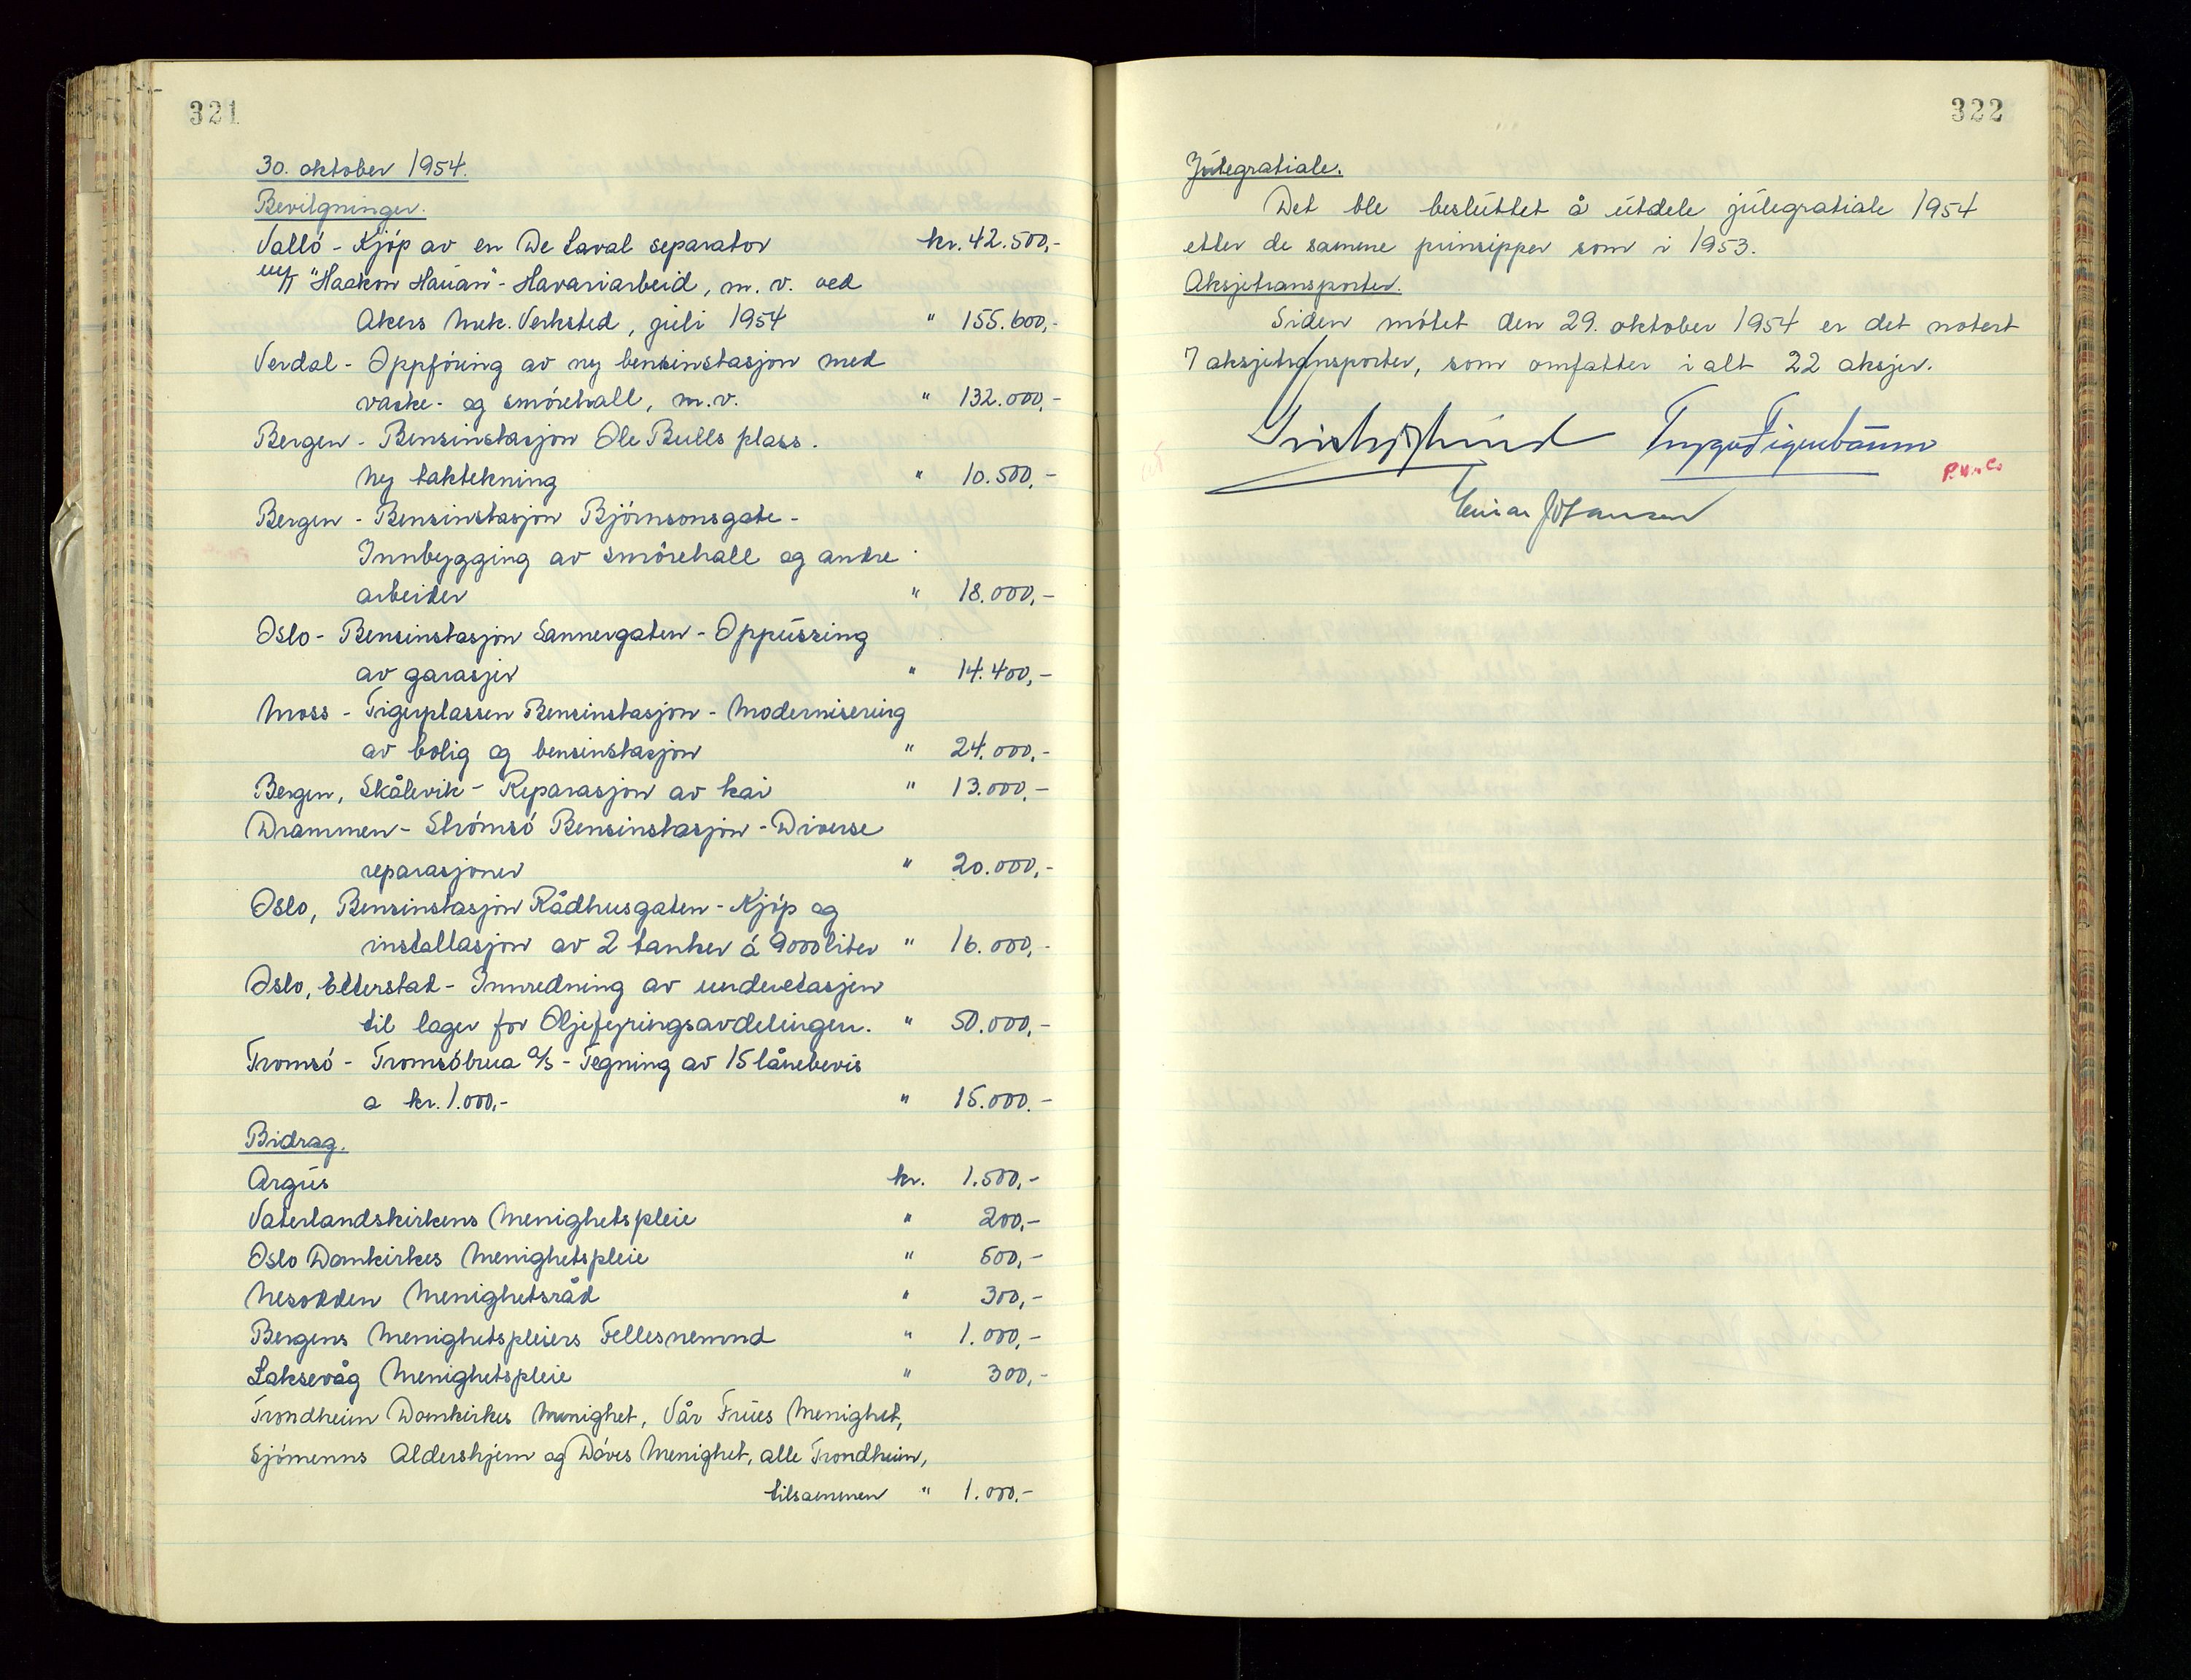 321
30. oktober 1954.
Bevilgninger.
Vallö - Kjöp av en De Laval separator kr. 42.500,-
M/T "Haakon Hauan" - Havariarbeid, m. v. ved
Akers Mek. Verksted, juli 1954 " 155.600,-
Verdal - Oppföring av ny bensinstasjon med
vaske- og smörehall, m.v. " 132.000,-
Bergen - Bensinstasjon Ole Bulls plass.
Ny taktekning " 10.500,-
Bergen - Bensinstasjon Björnsonsgate -
Innbygging av smörehall og andre
arbeider " 18.000,-
Oslo - Bensinstasjon Sannergaten - Oppussing
av garasjer " 14.400,-
Moss - Tigerplassen Bensinstasjon - Modernisering
av bolig og bensinstasjon " 24.000,-
Bergen, Skålevik - Reparasjon av kai " 13.000,-
Drammen - Strömsö Bensinstasjon - Diverse
reparasjoner " 20.000,-
Oslo, Bensinstasjon Rådhusgaten - Kjöp og
installasjon av 2 tanker á 9000 liter " 16.000,-
Oslo, Etterstad - Innredning av underetasjen
til lager for Oljefyringsavdelingen. " 50.000,-
Tromsö - Tromsöbrua A/S - Tegning av 15 lånebevis
a kr. 1.000,- " 15.000.-
Bidrag.
Argus kr. 1.500,-
Vaterlandskirkens Menighetspleie " 200,-
Oslo Domkirkes Menighetspleie " 500,-
Nesodden Menighetsråd " 300,-
Bergens Menighetspleiers Fellesnemnd " 1.000,-
Laksevåg Menighetspleie " 300,-
Trondheim Domkirkes Menighet, Vår Frues Menighet,
Sjömenns Aldershjem og Döves Menighet, alle Trondheim,
tilsammen " 1.000.-
322
Julegratiale.
Det ble besluttet å utdele julegratiale 1954
etter de samme prinsipper som i 1953.
Aksjetransporter.
Siden mötet den 29. oktober 1954 er det notert
7 aksjetransporter, som omfatter i alt 22 aksjer.